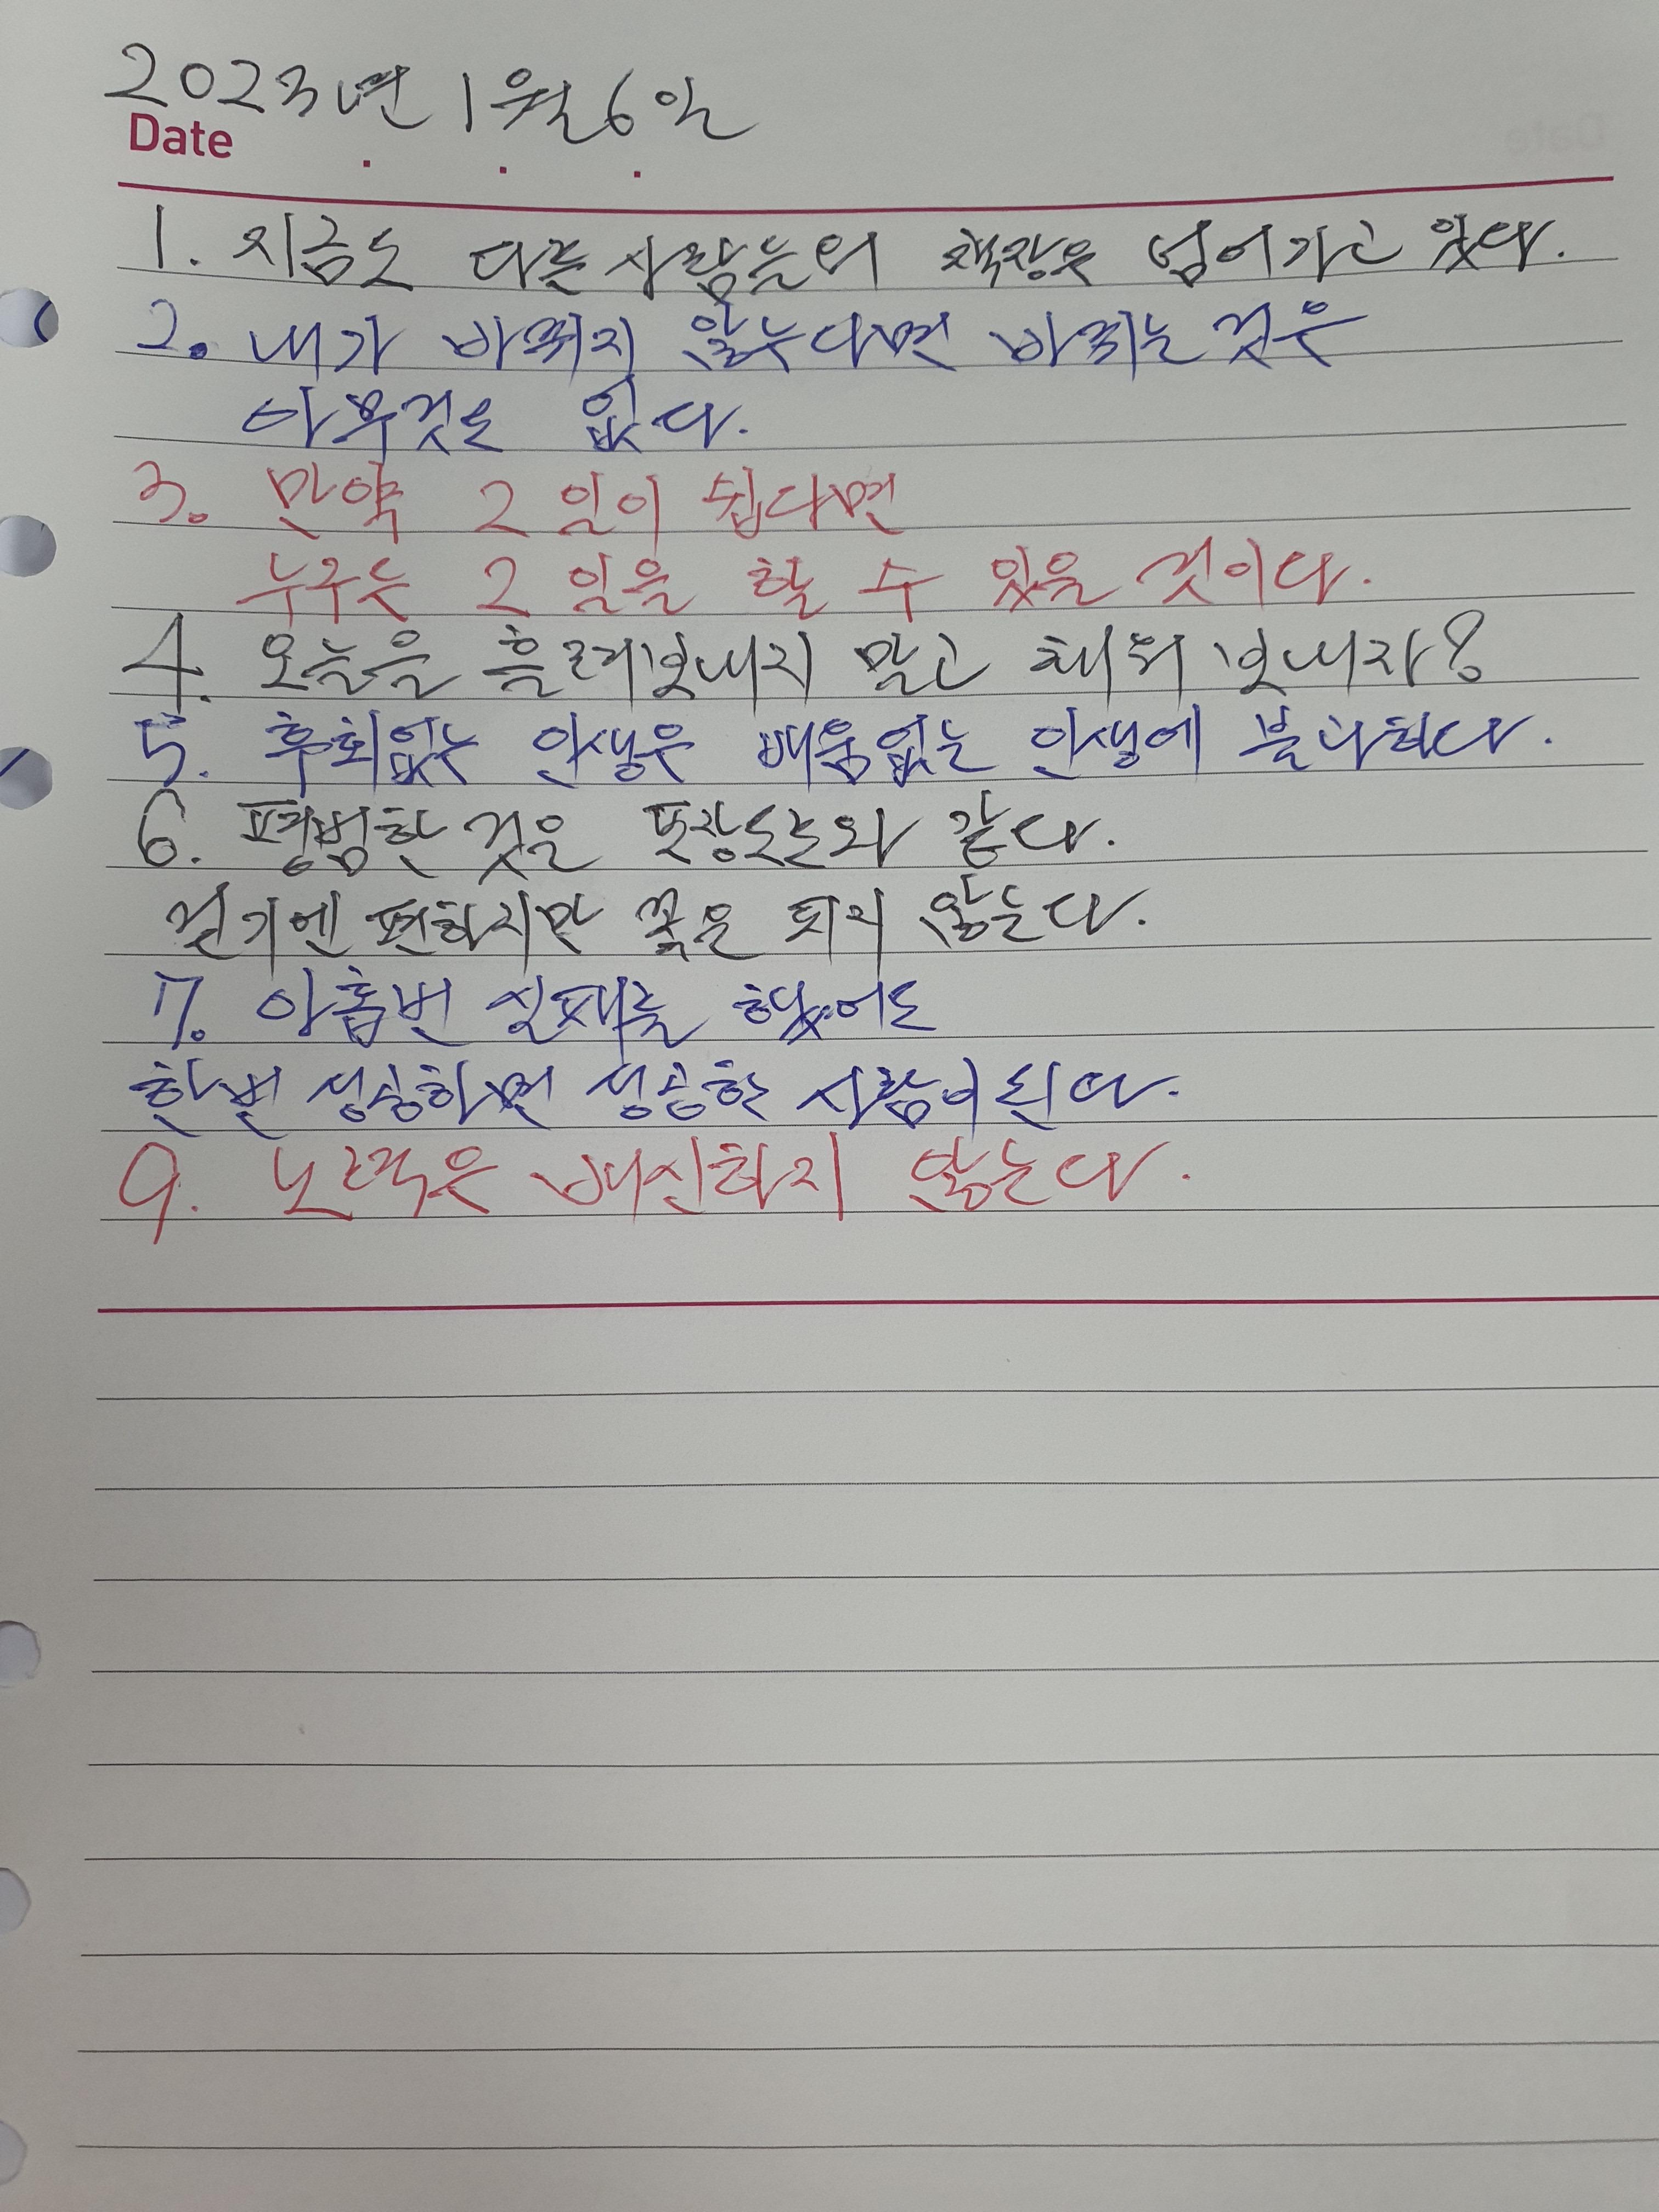 2023년 1월 6일
Date . . .
1. 지금도 다른 사람들의 책장은 넘어가고 있다.
2. 내가 바뀌지 않는다면 바뀌는 것은
아무것도 없다.
3. 만약 그 일이 쉽다면
누구든 그 일을 할 수 있을 것이다.
4. 오늘을 흘려보내지 말고 채워 보내자?
5. 후회없는 인생은 배움없는 인생에 불과하다.
6. 평범한 것은 포장도로와 같다.
걷기엔 편하지만 꽃은 피지 않는다.
7. 아홉번 실패를 했어도
한번 성공하면 성공한 사람이 된다.
9. 노력은 배신하지 않는다.